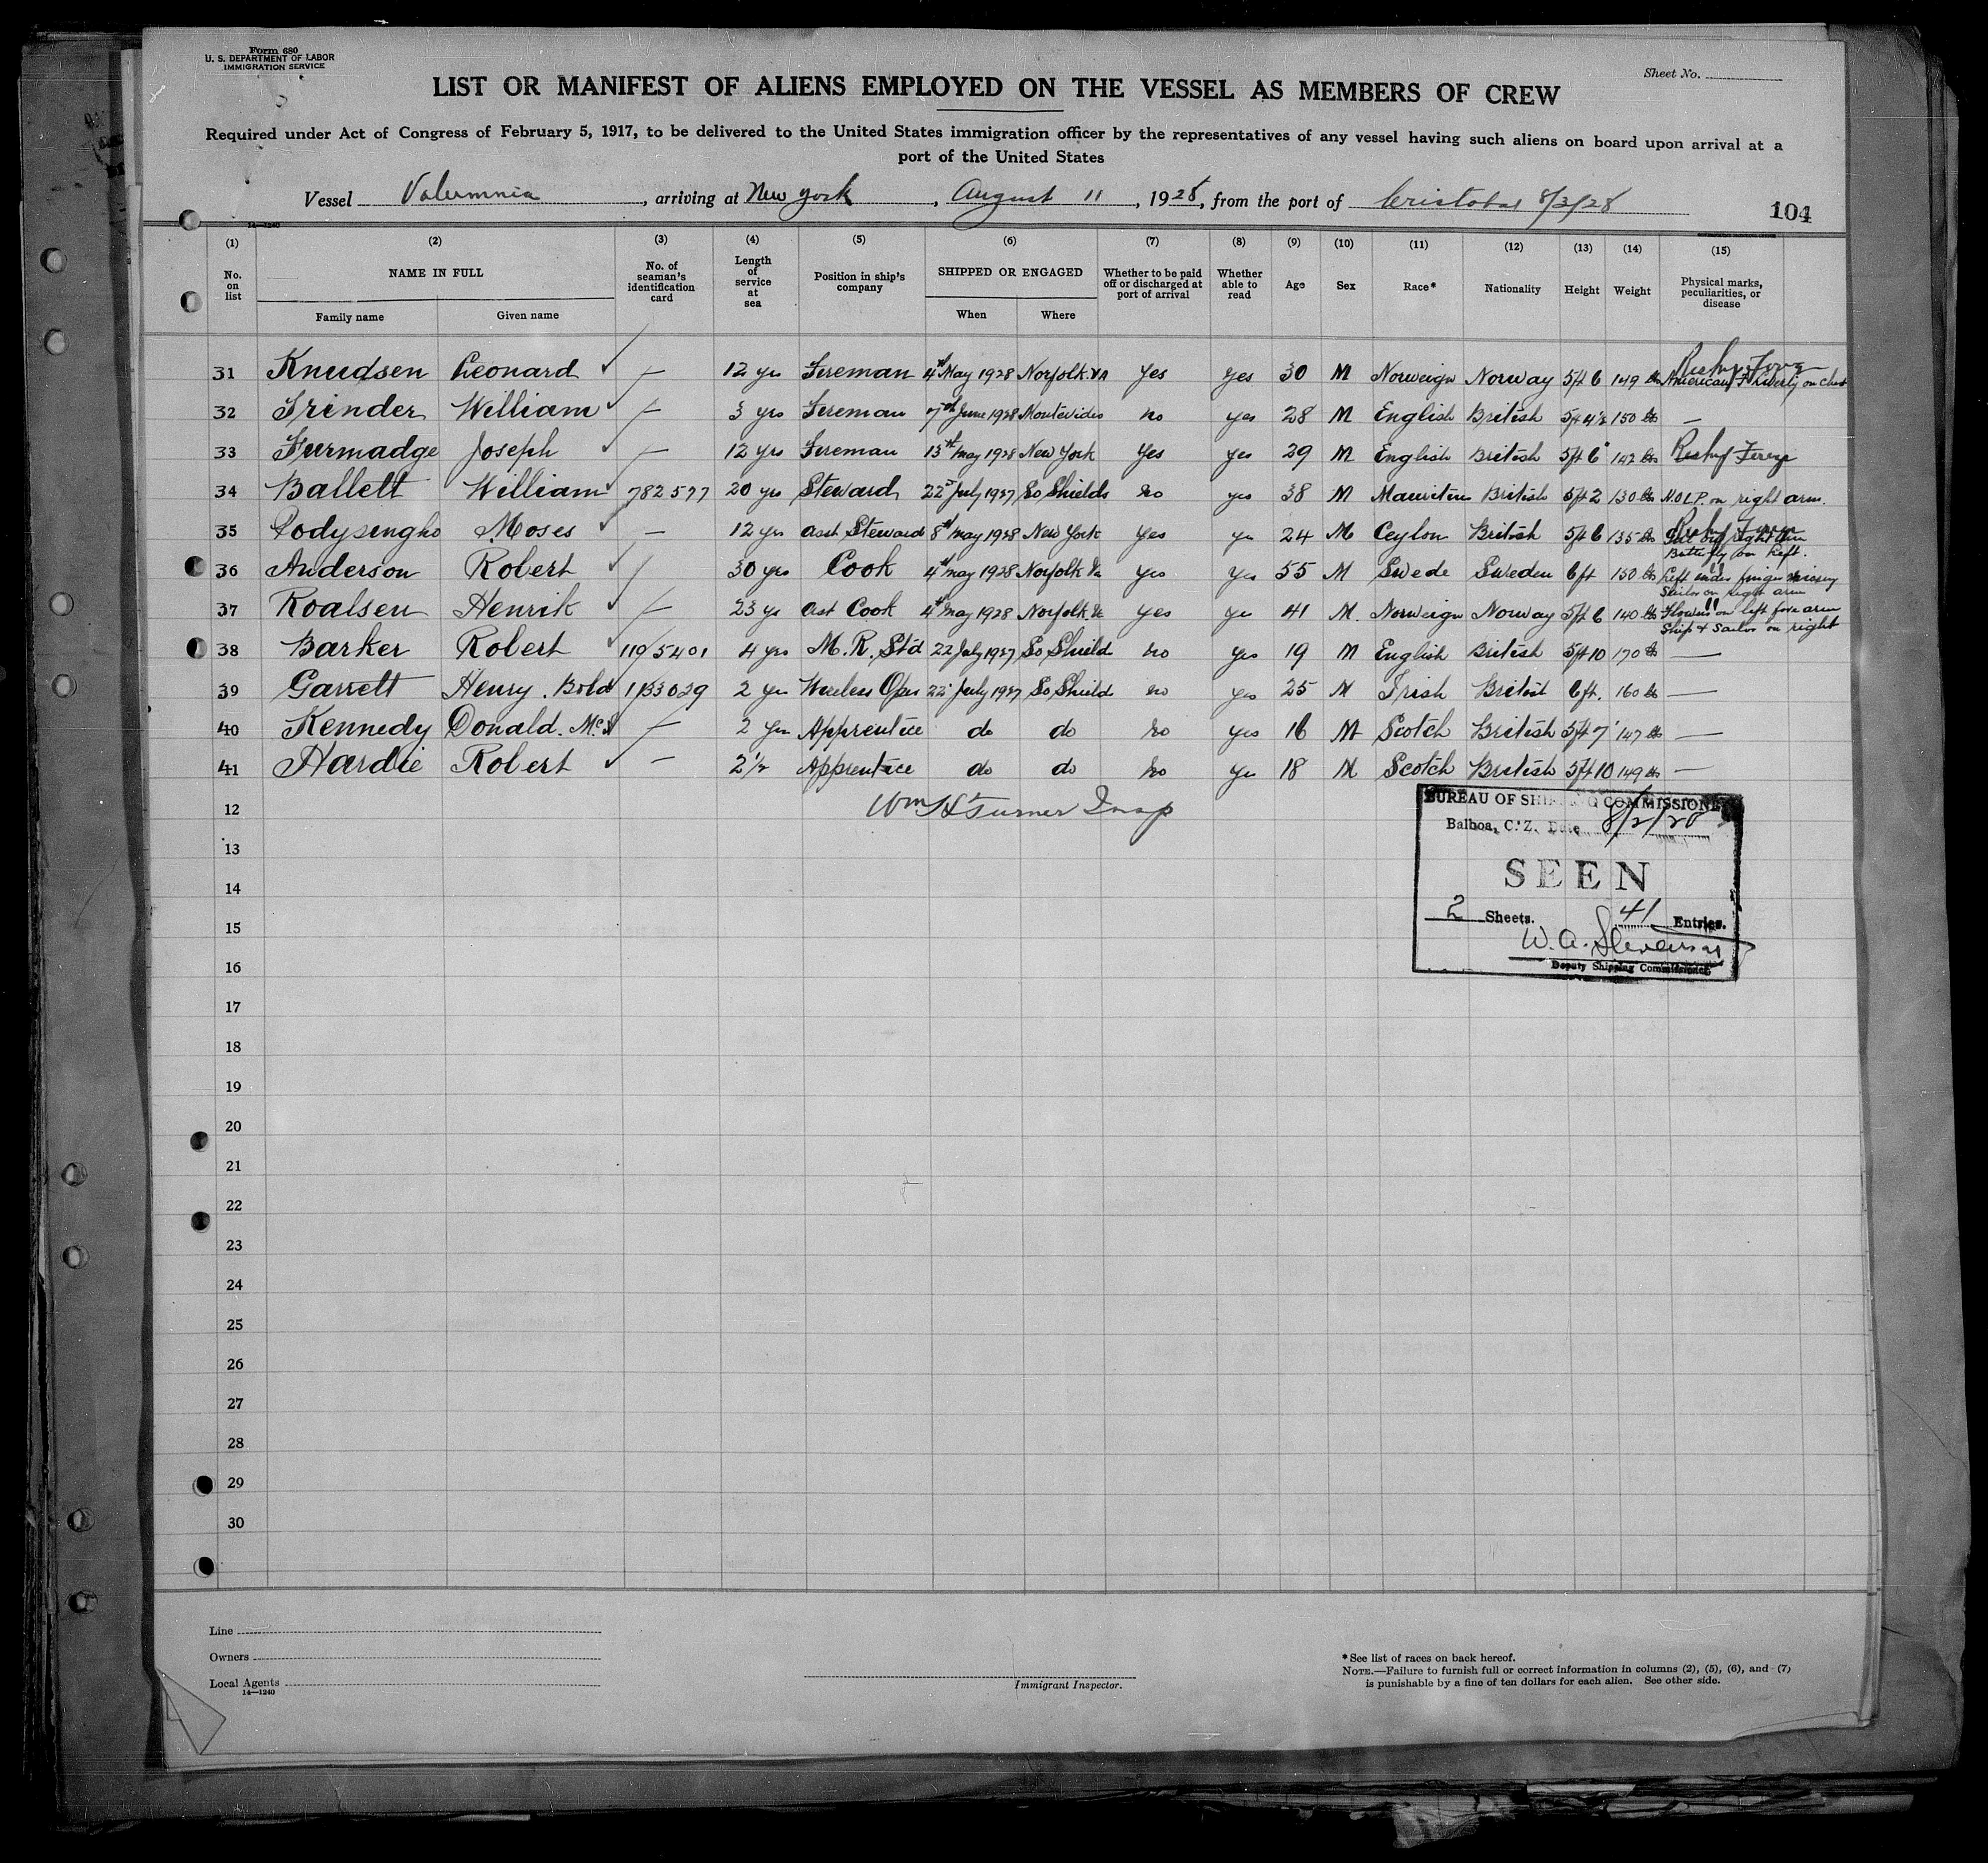 Form 680
U. S. DEPARTMENT OF LABOR
IMMIGRATION SERVICE
Sheet No.
LIST OR MANIFEST OF ALIENS EMPLOYED ON THE VESSEL AS MEMBERS OF CREW
Required under Act of Congress of February 5, 1917, to be delivered to the United States immigration officer by the representatives of any vessel having such aliens on board upon arrival at a
port of the United States
Vessel Volumnia, arriving at New York, August 11, 1928, from the port of Cristobal 8/3/28
104
14—1240
(1) (2) (3) (4) (5) (6) (7) (8) (9) (10) (11) (12) (13) (14) (15)
No. on list
NAME IN FULL
Family name Given name
No. of seaman's identification card
Length of service at sea
Position in ship's company
SHIPPED OR ENGAGED
When Where
Whether to be paid off or discharged at port of arrival
Whether able to read
Age Sex Race* Nationality Height Weight
Physical marks, peculiarities, or disease
31 Knudsen Leonard — 12 yrs Fireman 4th May 1928 Norfolk. Va Yes Yes 30 M Norweign Norway 5ft 6 149 lbs American on chest
32 Trinder William — 3 yrs Fireman 7th June 1928 Montevideo no yes 28 M English British 5ft 4½ 150 lbs —
33 Furmadge Joseph — 12 yrs Fireman 13th May 1928 New York Yes yes 29 M English British 5ft 6 142 lbs
34 Ballett William 782577 20 yrs Steward 22nd July 1927 So Shields no yes 38 M British 5ft 2 130 lbs N.O.L.P. on right arm.
35 Podysingho Moses — 12 yrs asst Steward 8th May 1928 New York Yes yes 24 M Ceylon British 5ft 6 135 lbs
Butterfly on left.
36 Anderson Robert — 30 yrs Cook 4th May 1928 Norfolk Va yes yes 55 M Swede Sweden 6ft 150 lbs Left index finger missing
Sailor on right arm
37 Roalsen Henrik — 23 yrs asst Cook 4th May 1928 Norfolk. Va yes yes 41 M. Norweign Norway 5ft 6 140 lbs Flowers on left fore arm
Ship & Sailor on right
38 Barker Robert 119/5401 4 yrs M. R. Std 22 July 1927 So Shield no yes 19 M English British 5ft 10 170 lbs —
39 Garrett Henry. Bold 1133029 2 yrs Wireless Oper 22nd July 1927 So Shield no yes 25 M Irish British 6ft. 160 lbs —
40 Kennedy Donald. — 2 yrs Apprentice do do no yes 16 M Scotch British 5ft 7 147 lbs —
41 Hardie Robert — 2½ Apprentice do do no yes 18 M Scotch British 5ft 10 149 lbs —
Wm H Turner Insp
12
13
14
15
16
17
18
19
20
21
22
23
24
25
26
27
28
29
30
BUREAU OF SHIPPING COMMISSIONER
Balboa, C. Z. Date 8/2/28
SEEN
2 Sheets. 41 Entries.
W. A. Stevenson
Deputy Shipping Commissioner
Line
Owners
Local Agents
14—1240
Immigrant Inspector.
*See list of races on back hereof.
NOTE.—Failure to furnish full or correct information in columns (2), (5), (6), and (7)
is punishable by a fine of ten dollars for each alien. See other side.